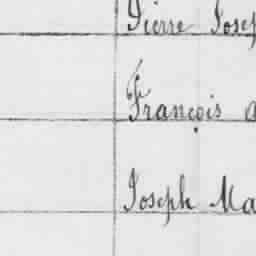 Pierre Josep
François a
Joseph Ma